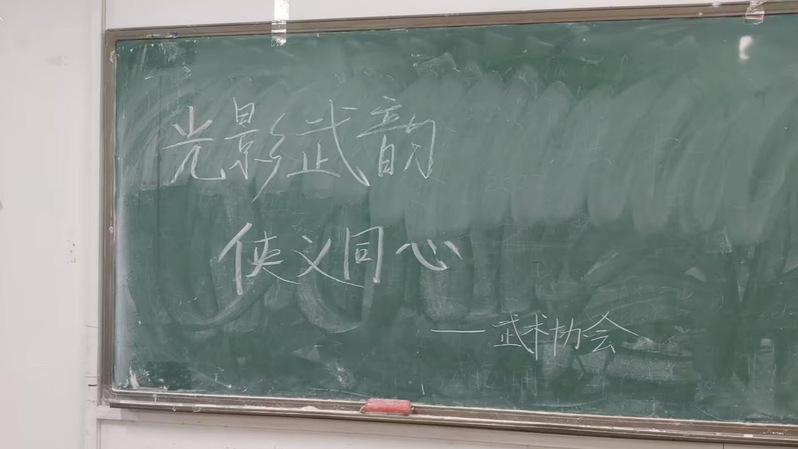 光影武韵
侠义同心
—武术协会